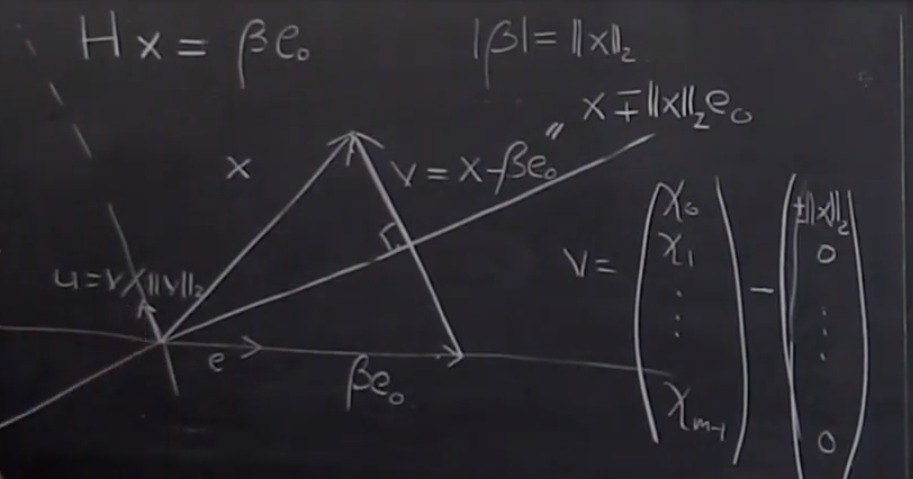 Hx = βe₀
|β| = ‖x‖₂
x ∓ ‖x‖₂e₀
‖
x
v = x - βe₀
u = v/‖v‖₂
e
βe₀
v = (χ₀ χ₁ ⋮ χₘ₋₁) - (±‖x‖₂ 0 ⋮ 0)